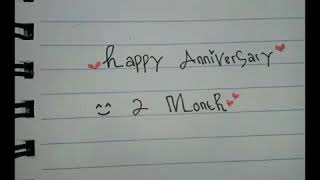 happy Anniversary
2 Month